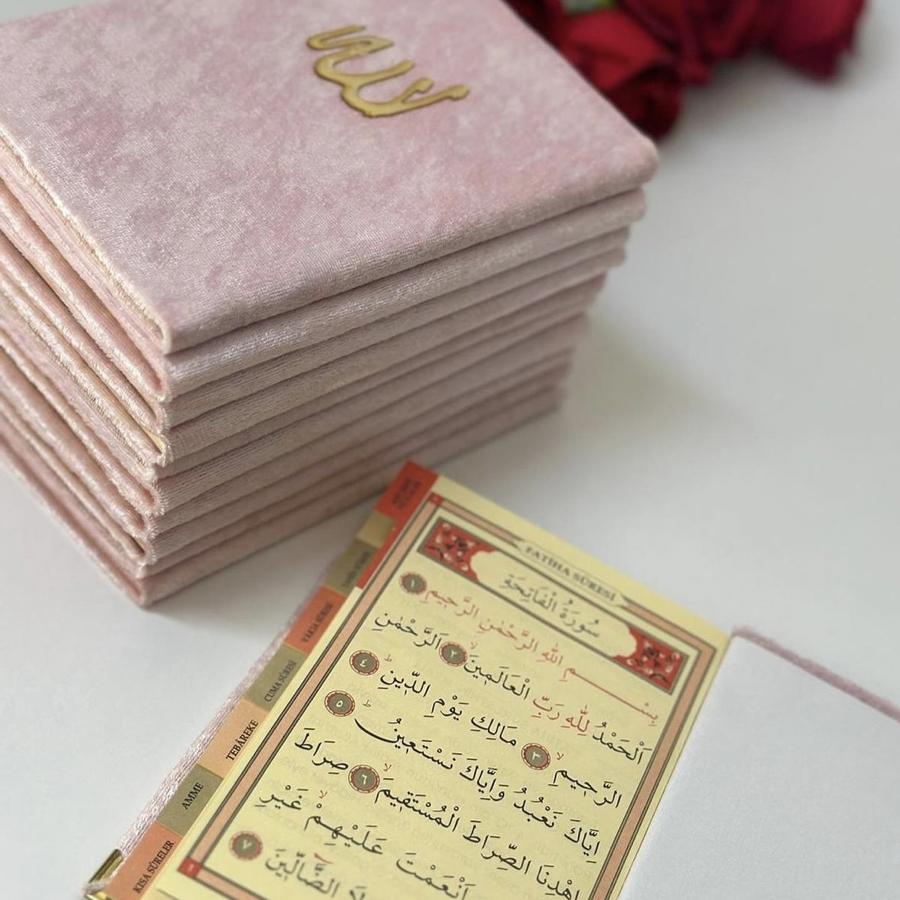 الله
FATİHA SÛRESİ
سُورَةُ الْفَاتِحَةِ
بِسْــــــمِ اللّٰهِ الرَّحْمٰنِ الرَّحٖيمِ ١
اَلْحَمْدُ لِلّٰهِ رَبِّ الْعَالَمٖينَ ٢ اَلرَّحْمٰنِ
الرَّحٖيمِ ٣ مَالِكِ يَوْمِ الدّٖينِ ٤
اِيَّاكَ نَعْبُدُ وَاِيَّاكَ نَسْتَعٖينُ ٥
اِهْدِنَا الصِّرَاطَ الْمُسْتَقٖيمَ ٦ صِرَاطَ
اَنْعَمْتَ عَلَيْهِمْ غَيْرِ
لَا الضَّٓالّٖينَ ٧
YÂSİN SÛRESİ
CUMA SÛRESİ
TEBÂREKE
AMME
KISA SÛRELER